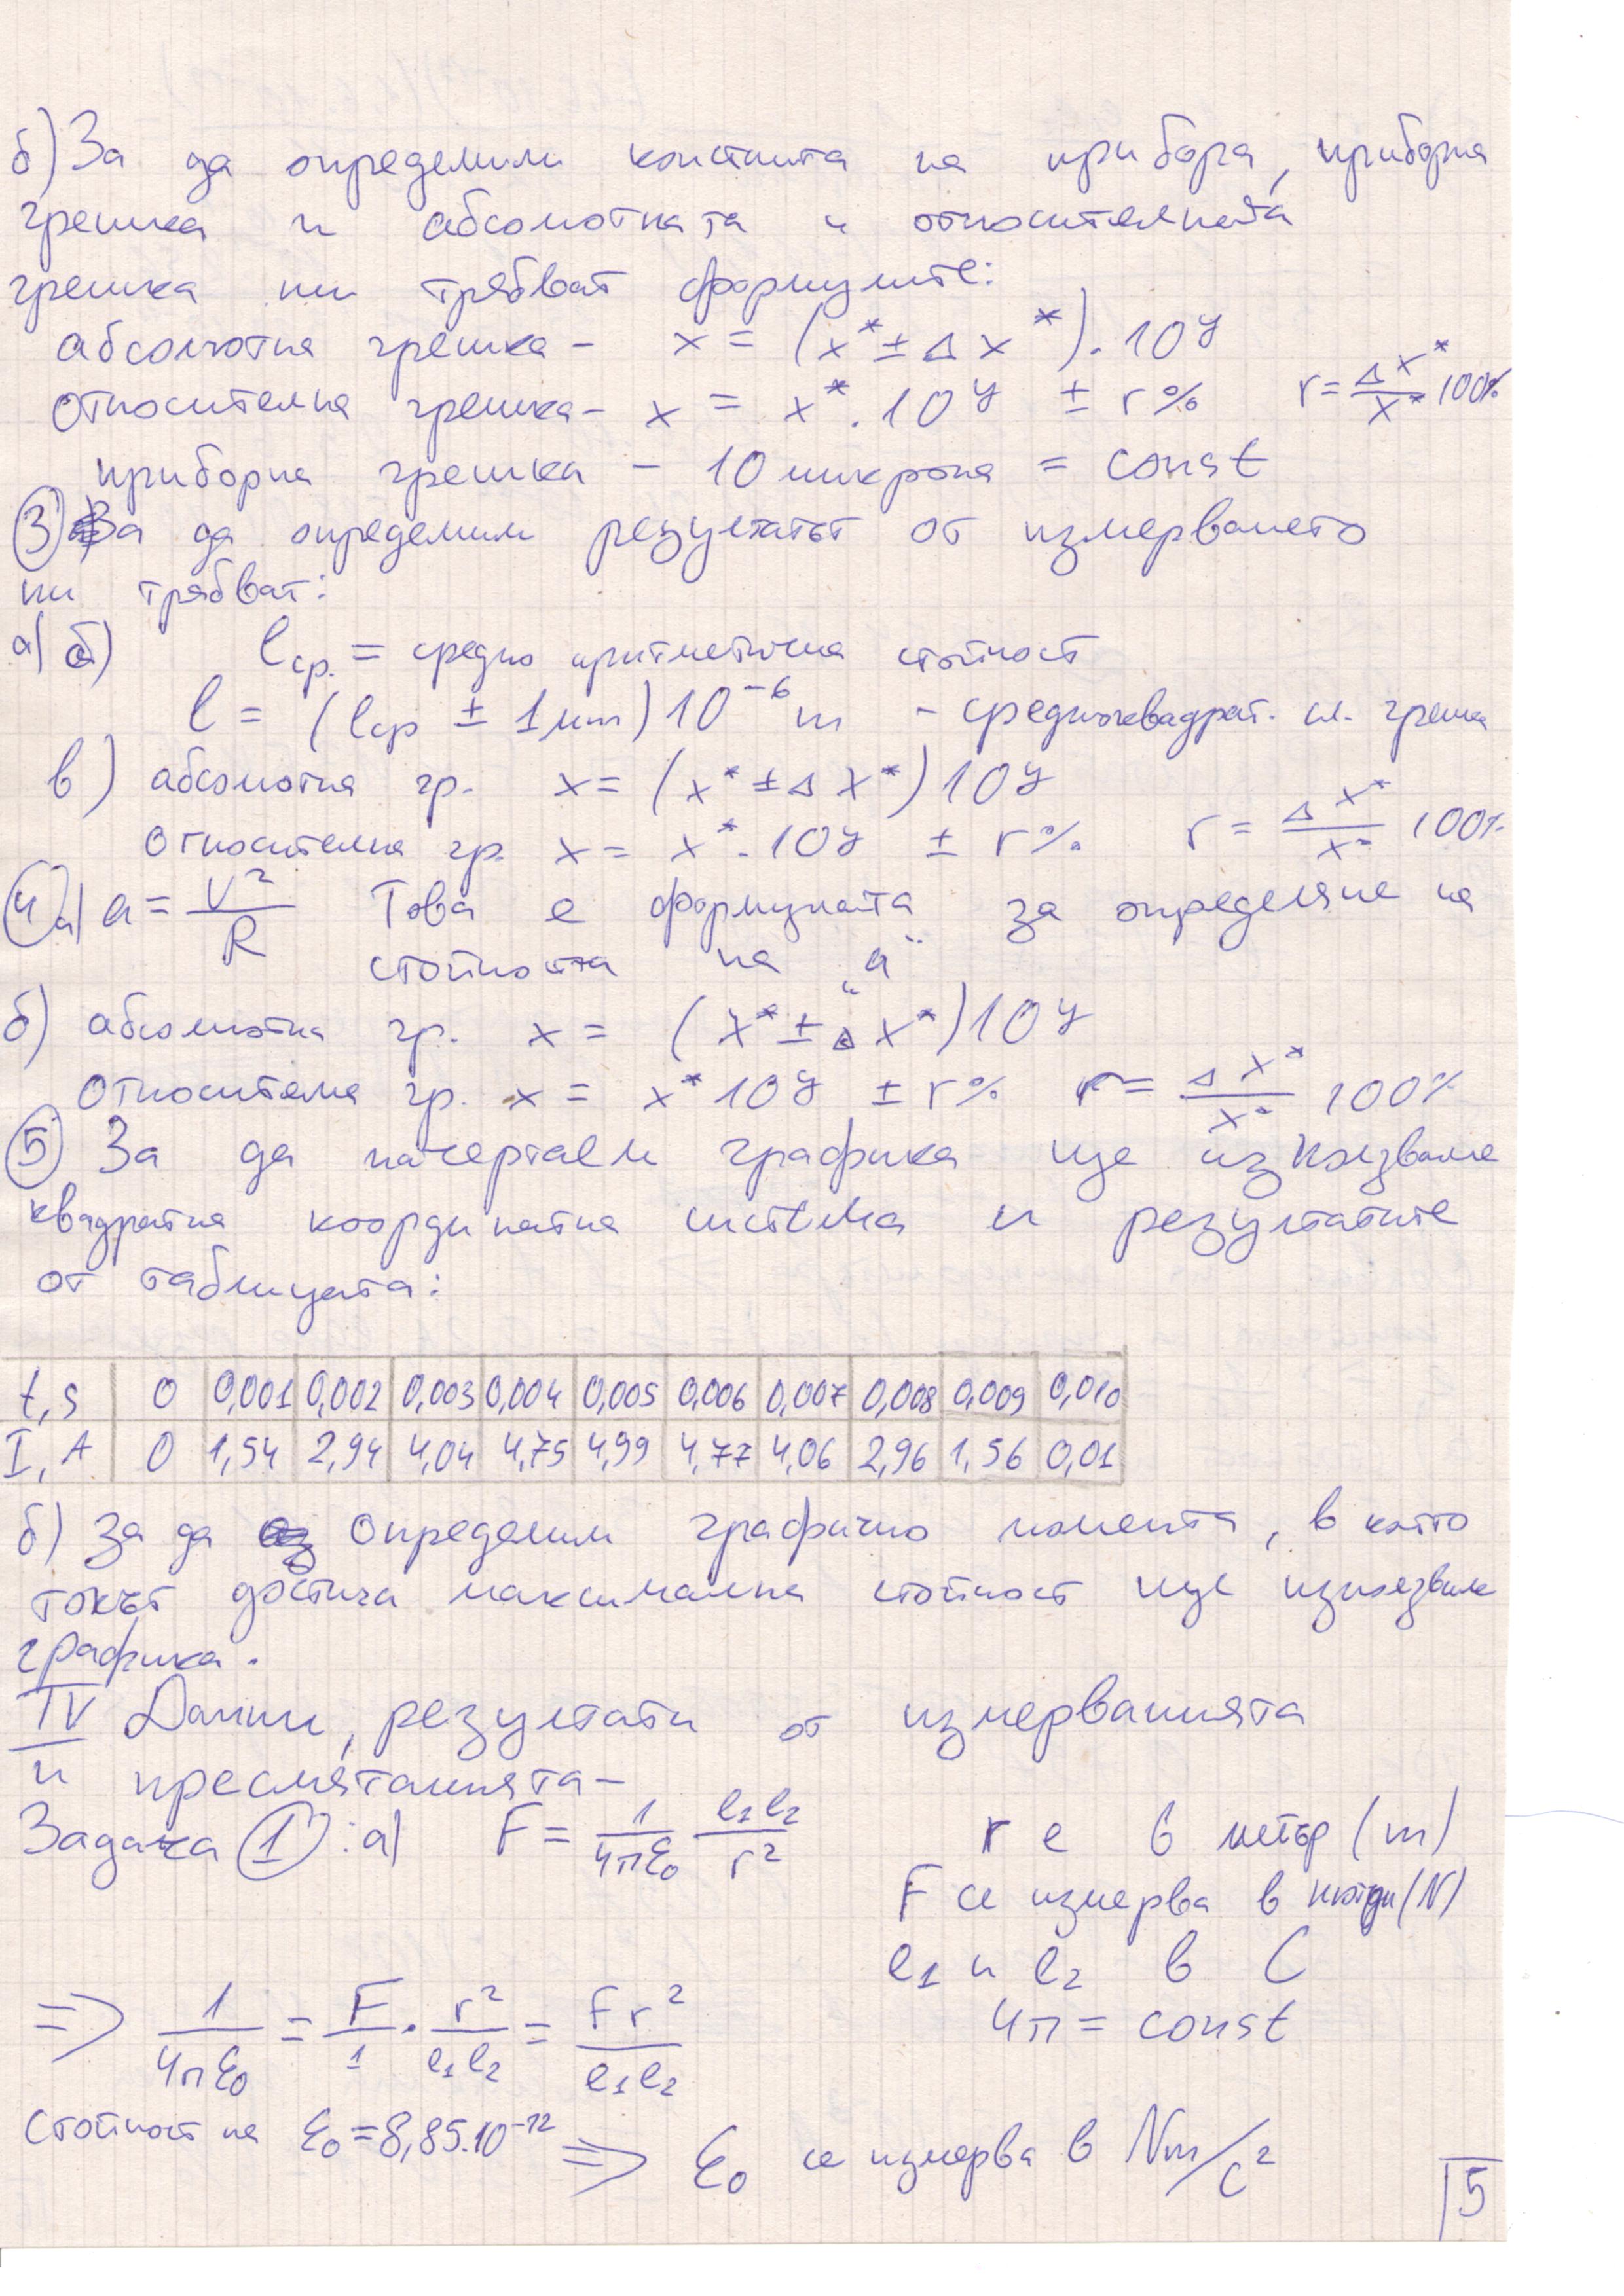 б) За да определим константа на прибора, приборна
грешка и абсолютната и относителната
грешка ни трябват формулите:
абсолютна грешка - x = (x* ± Δx*).10^y
относителна грешка - x = x*.10^y ± r% r = Δx*/x* 100%
приборна грешка - 10 микрона = const
③ За да определим резултатът от измерването
ни трябват:
а) б) l ср. = средно аритметична стойност
l = (lср ± 1μm)10^-6 m - средноквадрат. сл. грешка
в) абсолютна гр. x = (x* ± Δx*)10^y
относителна гр. x = x*.10^y ± r% r = Δx*/x* 100%
④ а) a = V²/R Това е формулата за определяне на
стойността на „a“
б) абсолютна гр. x = (x* ± Δx*)10^y
относителна гр. x = x* 10^y ± r% r = Δx*/x* 100%
⑤ За да начертаем графика ще използваме
квадратна координатна система и резултатите
от таблицата:
t, s 0 0,001 0,002 0,003 0,004 0,005 0,006 0,007 0,008 0,009 0,010
I, A 0 1,54 2,94 4,04 4,75 4,99 4,77 4,06 2,96 1,56 0,01
б) За да определим графично момента, в който
токът достига максимална стойност ще използваме
графика.
IV Данни, резултати от измерванията
и пресмятанията -
Задача ① : а) F = 1/4πε₀ e₁e₂/r² r е в метър (m)
F се измерва в нютони (N)
e₁ и e₂ в C
4π = const
=> 1/4πε₀ = F/1 . r²/e₁e₂ = Fr²/e₁e₂
Стойност на ε₀ = 8,85.10^-12 => ε₀ се измерва в Nm/C²
5